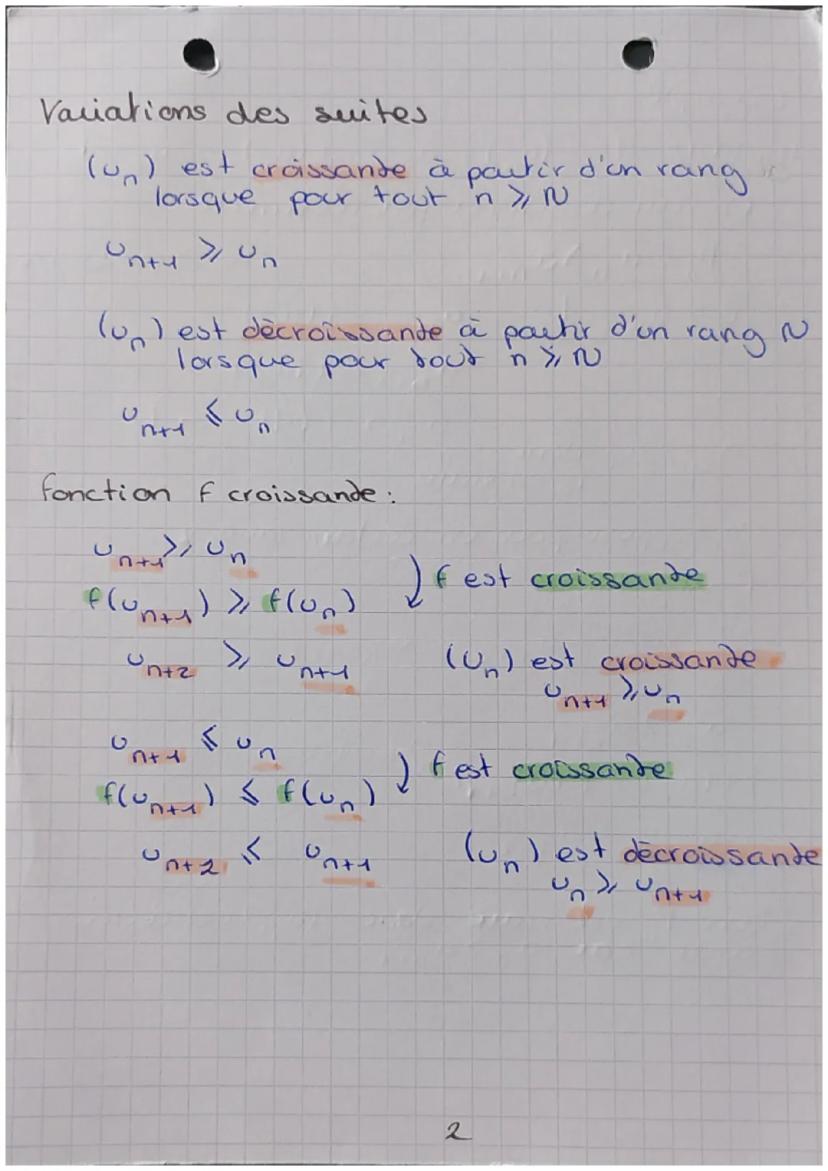 Variations des suites
(un) est croissante à partir d'un rang
lorsque pour tout n ⩾ N
un+1 ⩾ un
(un) est décroissante à partir d'un rang N
lorsque pour tout n ⩾ N
un+1 ⩽ un
fonction f croissante :
un+1 ⩾ un
f est croissante
f(un+1) ⩾ f(un)
un+2 ⩾ un+1
(un) est croissante
un+1 ⩾ un
un+1 ⩽ un
f est croissante
f(un+1) ⩽ f(un)
un+2 ⩽ un+1
(un) est décroissante
un ⩾ un+1
2